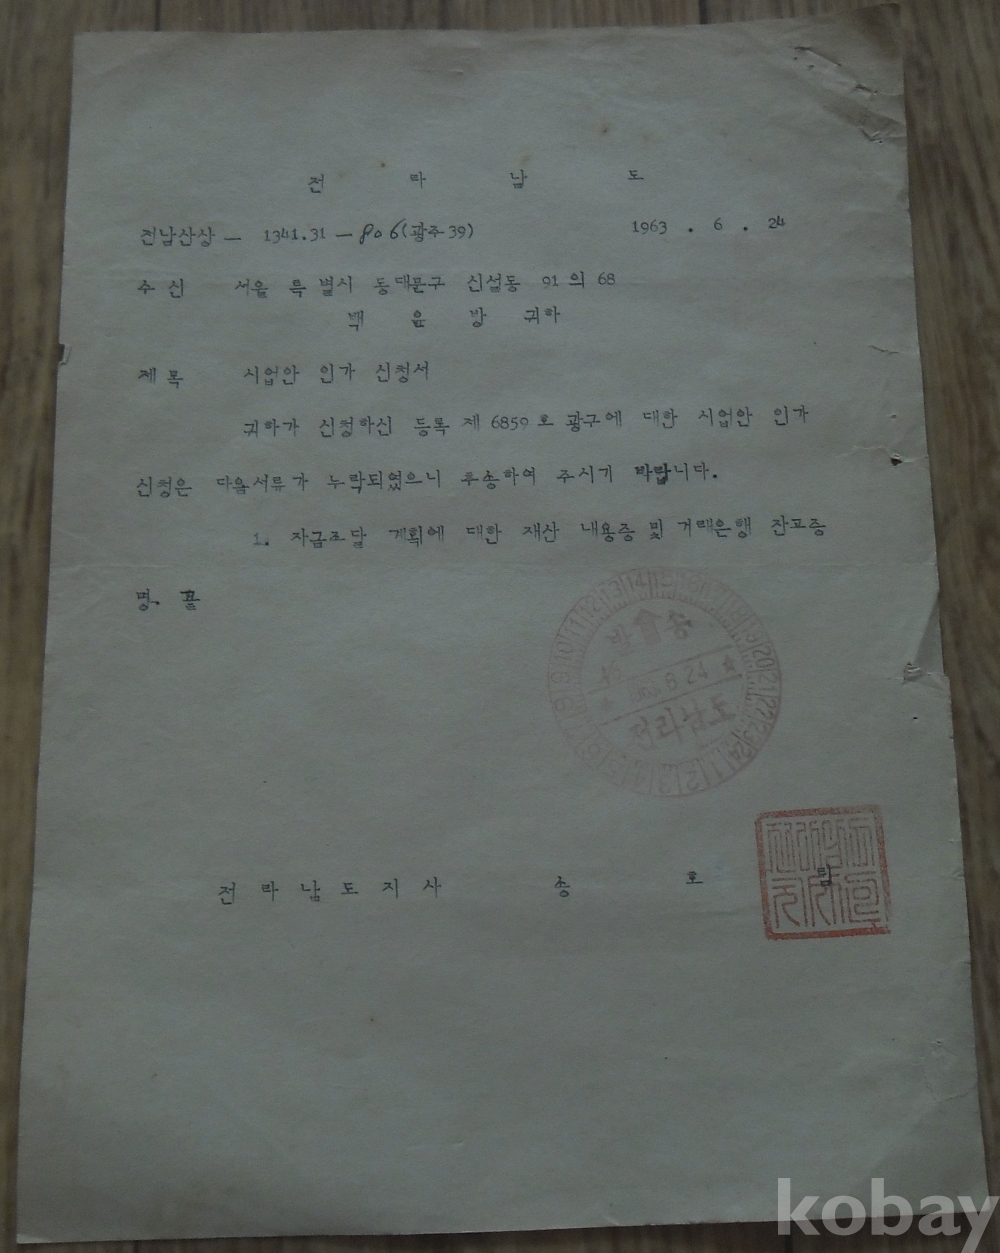 전 라 남 도
전남산상 — 1341.31 — 806(광주39) 1963 . 6 . 24
수 신 서울 특 별시 동대문구 신설동 91 의 68
백 윤 방 귀하
제 목 시업안 인가 신청서
귀하가 신청하신 등록 제 6859 호 광구에 대한 시업안 인가
신청은 다음서류가 누락되었으니 추송하여 주시기 바랍니다.
1. 자금조달 계획에 대한 재산 내용증 및 거래은행 잔고증
명. 끝
발송
6 24
전라남도
전 라 남 도 지 사 송 호 림
kobay